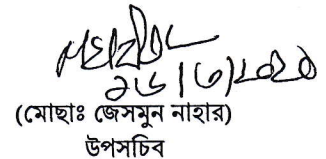 ১৬/৩/২০২০
(মোছাঃ জেসমুন নাহার)
উপসচিব